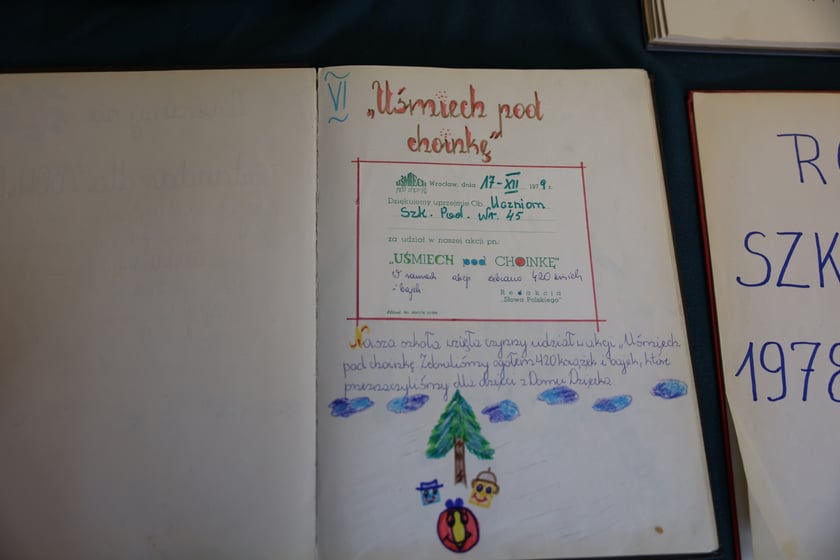 VI
„Uśmiech pod
choinkę"
UŚMIECH
pod choinkę
Wrocław, dnia 17-XII 1979 r.
Dziękujemy uprzejmie Ob. Uczniom
Szk. Pod. Nr. 45
za udział w naszej akcji pn.:
„UŚMIECH pod CHOINKĘ"
W ramach akcji zebrano 420 książek
i bajek
Redakcja
„Słowa Polskiego"
Nasza szkoła wzięła czynny udział w akcji „Uśmiech
pod choinkę. Zebraliśmy ogółem 420 książek i bajek, które
przeznaczyliśmy dla dzieci z Domu Dziecka
SZK
1978